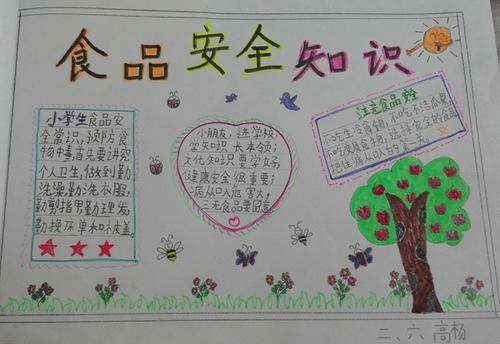 食品安全知识
小学生食品安
全常识,预防食
物中毒,首先要讲究
个人卫生,做到勤
洗澡,勤洗衣服,
勤剪指甲,勤理发,
勤换床单和床盖。
小朋友,进学校,
学知识 长本领;
文化知识 要学好,
健康安全 很重要;
病从口入危害大,
三无食品要回意
注意食品安全
不吃生冷食物,不吃不洁瓜果,
不吃变质食物,选择安全的食品
把住病从口入的关。
二、六 高杨